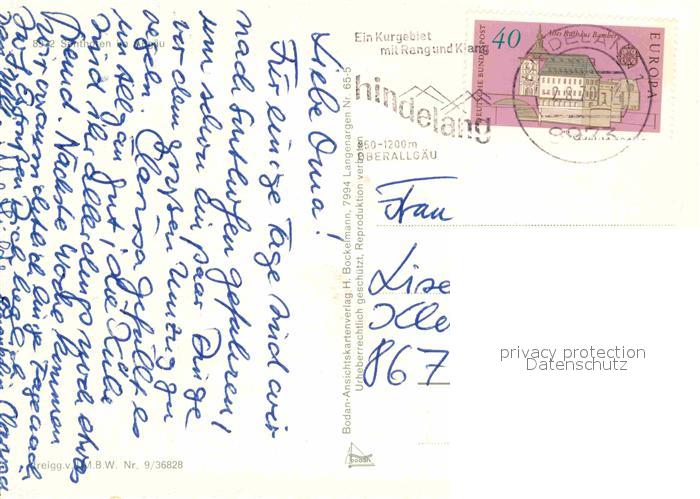 8972 Sonthofen im Allgäu
Liebe Oma!
Für einige Tage sind wir
nach Sonthofen gefahren!
um schon ein paar Dinge
vor dem großen Umzug zu
regeln. Clarissa gefällt es
im Allgäu gut! die Kühe
sind ihr allerdings noch etwas
fremd. Nächste Woche kommen
wir einige Tage nach
Freigg.v. M.B.W. Nr. 9/36828
Bodan-Ansichtskartenverlag H. Bockelmann, 7994 Langenargen Nr. 65-5
Urheberrechtlich geschützt, Reproduktion verboten
BODAN
Ein Kurgebiet
mit Rang und Klang
hindelang
850-1200m
OBERALLGÄU
DEUTSCHE BUNDESPOST
40
Altes Rathaus Bamberg
EUROPA
8973
Frau
Lise
867
privacy protection
Datenschutz